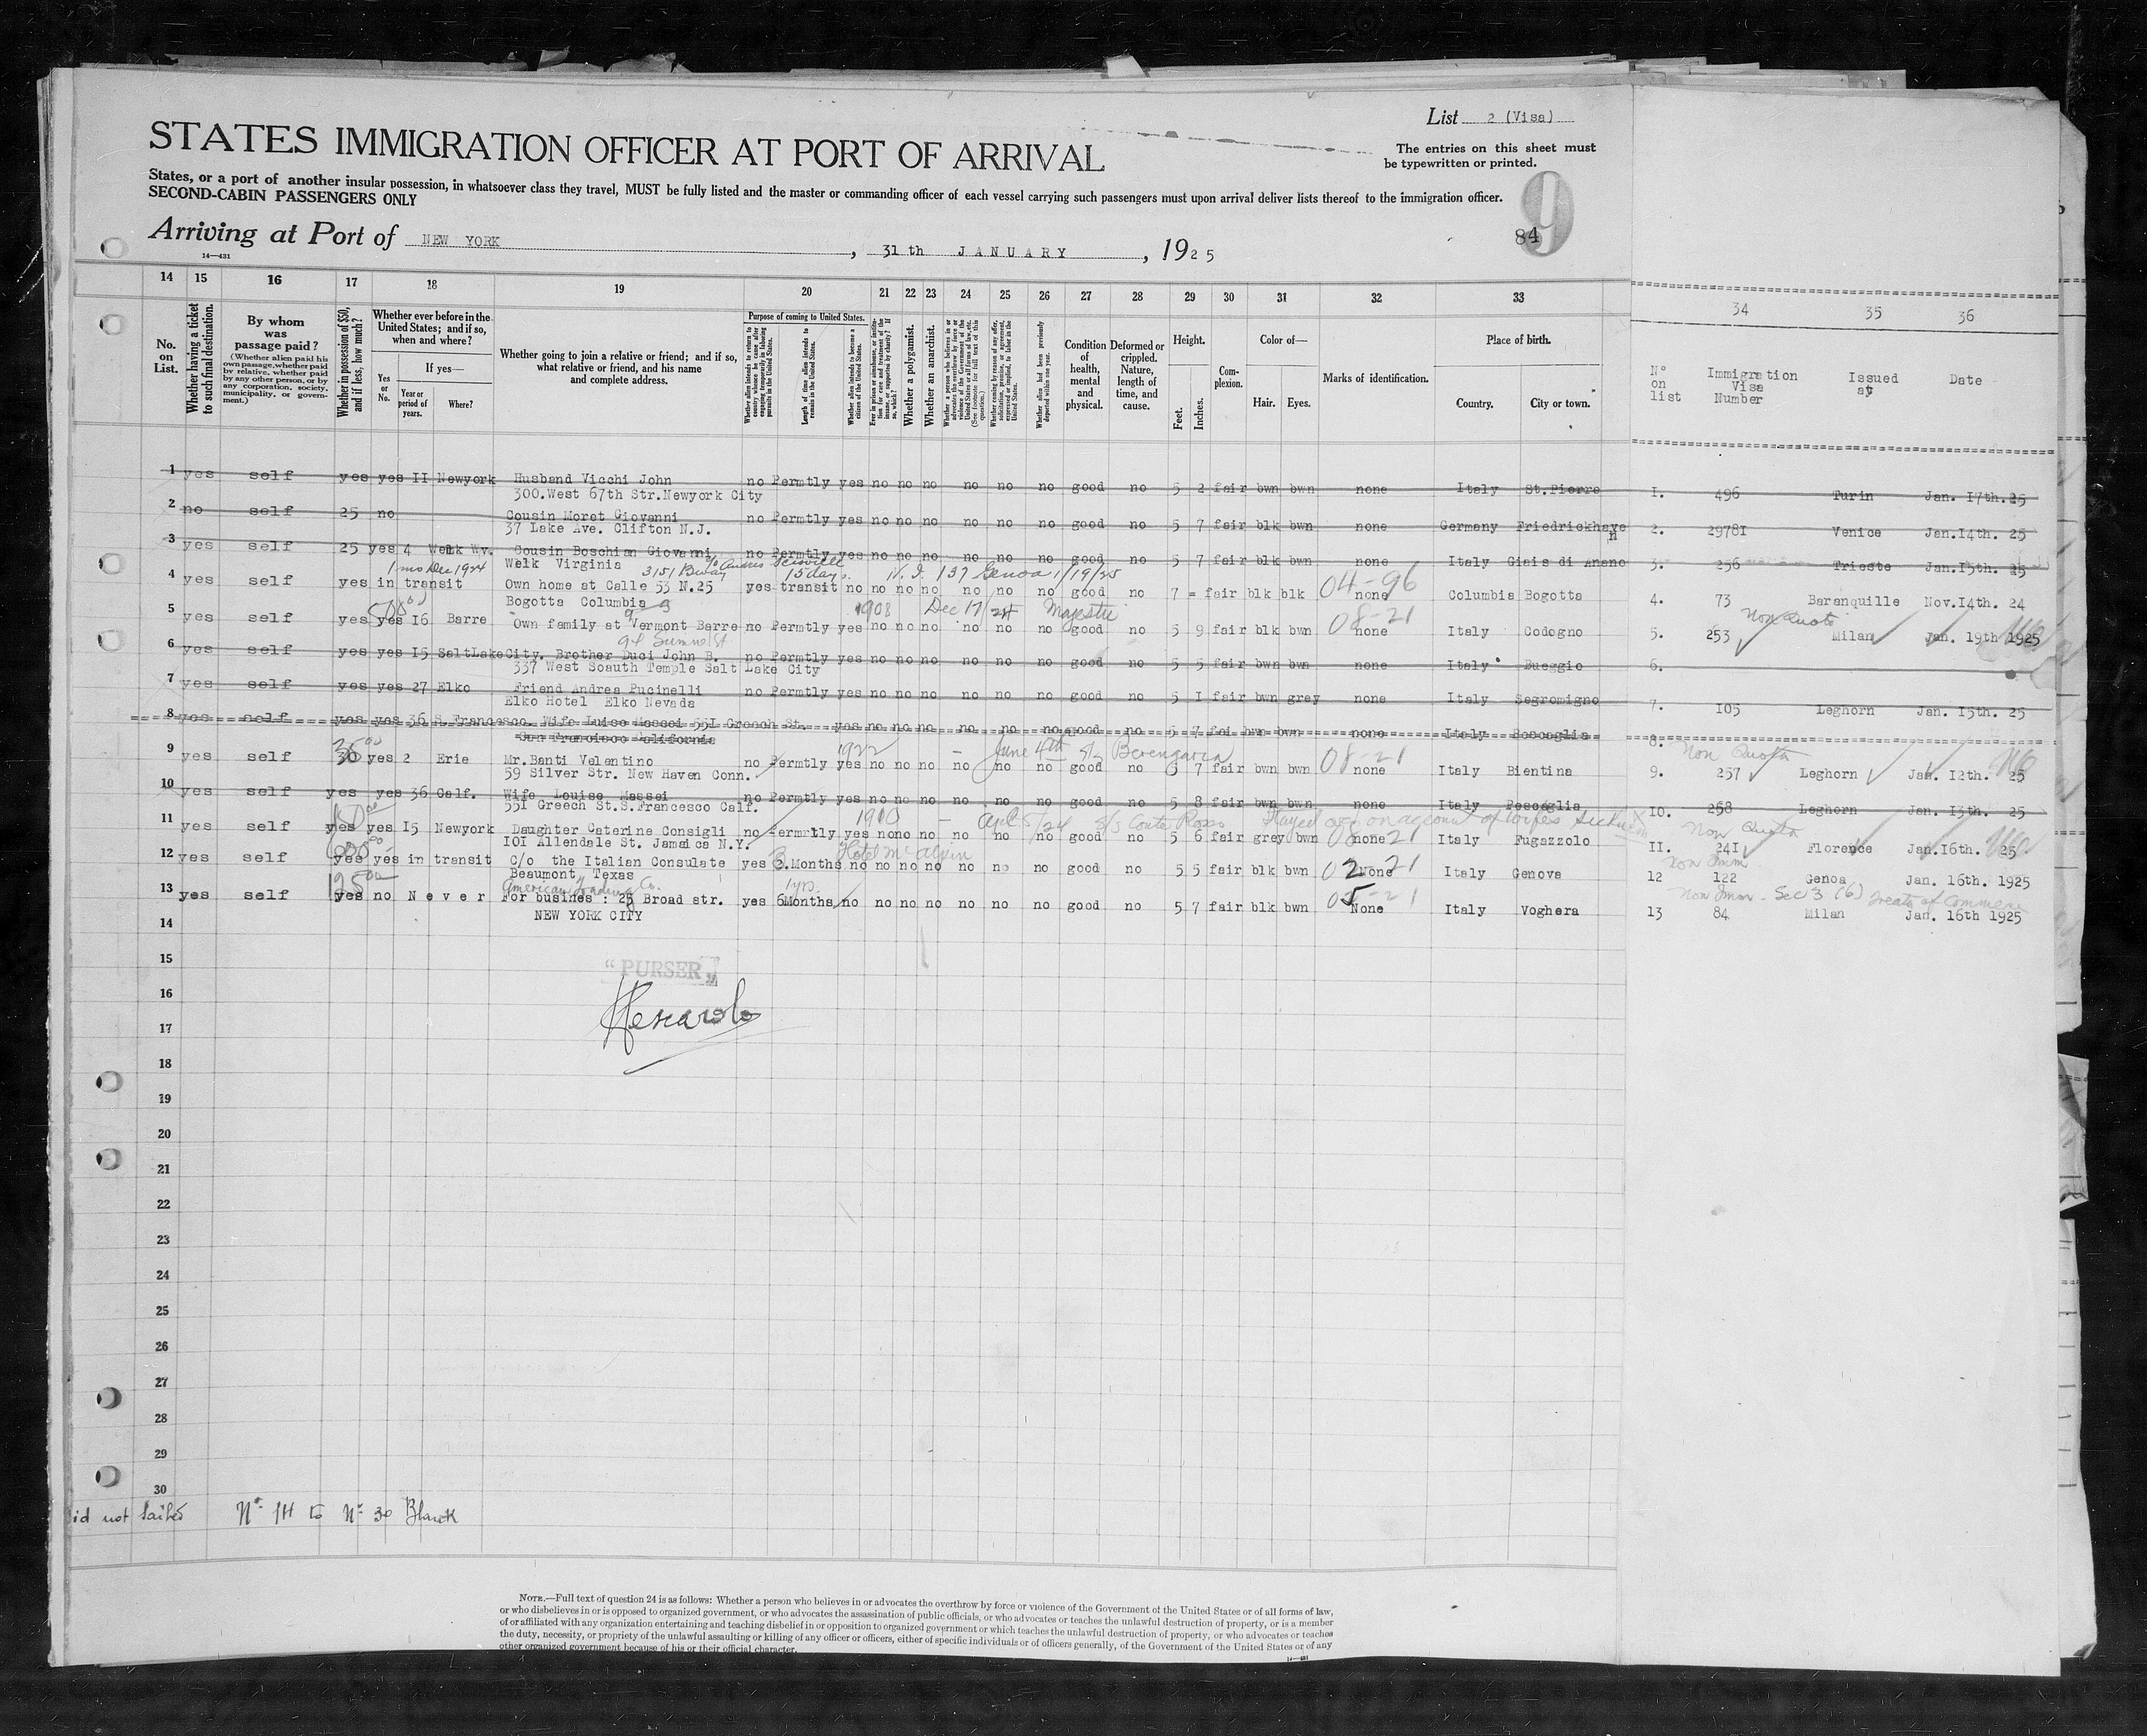 List 2 (Visa)
STATES IMMIGRATION OFFICER AT PORT OF ARRIVAL
The entries on this sheet must be typewritten or printed.
States, or a port of another insular possession, in whatsoever class they travel, MUST be fully listed and the master or commanding officer of each vessel carrying such passengers must upon arrival deliver lists thereof to the immigration officer.
SECOND-CABIN PASSENGERS ONLY
9
84
Arriving at Port of NEW YORK, 31th JANUARY, 1925
14—431
14 15 16 17 18 19 20 21 22 23 24 25 26 27 28 29 30 31 32 33 34 35 36
No. on List.
Whether having a ticket to such final destination.
By whom was passage paid?
(Whether alien paid his own passage, whether paid by relative, whether paid by any other person, or by any corporation, society, municipality, or government.)
Whether in possession of $50, and if less, how much?
Whether ever before in the United States; and if so, when and where?
Yes or No.
If yes—
Year or period of years.
Where?
Whether going to join a relative or friend; and if so, what relative or friend, and his name and complete address.
Purpose of coming to United States.
Length of time alien intends to remain in the United States.
Whether alien intends to become a citizen of the United States.
Whether a polygamist.
Whether an anarchist.
Condition of health, mental and physical.
Deformed or crippled. Nature, length of time, and cause.
Height.
Feet.
Inches.
Complexion.
Color of—
Hair. Eyes.
Marks of identification.
Place of birth.
Country. City or town.
N° on list
Immigration Visa Number
Issued at
Date
1 yes self yes yes II Newyork Husband Vicchi John no Permtly yes no no no no no no good no 5 2 fair bwn bwn none Italy St.Pierre 1. 496 Turin Jan. 17th.25
300.West 67th Str.Newyork City
2 no self 25 no Cousin Moret Giovanni no Permtly yes no no no no no no good no 5 7 fair blk bwn none Germany Friedrickhaye 2. 2978I Venice Jan.14th. 25
37 Lake Ave. Clifton N.J.
3 yes self 25 yes 4 Welk Wv. Cousin Boschian Giovanni no Permtly yes no no no no no no good no 5 7 fair blk bwn none Italy Giais di Aneno 3. 256 Trieste Jan.15th. 25
Welk Virginia
1 mo Dec 1924 3151 Bway 15 days. 137 Genoa 1/19/25
4 yes self yes in transit Own home at Calle 53 N.25 yes transit no no no no no no no good no 7 = fair blk blk 04-96 none Columbia Bogotta 4. 73 Baranquille Nov.14th. 24
Bogotta Columbia
500 1908 Dec 17/24 Majestic Non Quota
5 yes self yes yes 16 Barre Own family at Vermont Barre no Permtly yes no no no no no no good no 5 9 fair blk bwn 08-21 none Italy Codogno 5. 253 Milan Jan. 19th 1925
6 yes self yes yes I5 SaltLakeCity. Brother Duci John B. no Permtly yes no no no no no no good no 5 5 fair bwn bwn none Italy Bueggio 6.
337 West Soauth Temple Salt Lake City
7 yes self yes yes 27 Elko Friend Andrea Pucinelli no Permtly yes no no no no no no good no 5 I fair bwn grey none Italy Segromigno 7. I05 Leghorn Jan. I5th. 25
Elko Hotel Elko Nevada
8 yes self yes yes 36 S.Francesco. Wife Luise Massei 55I Greech St. yes no no no no no no good no 5 7 fai bwn bwn none Italy Boscaglia 8.
San Francisco California
1922 — June 4th S/S Berengaria Non Quota
9 yes self 30 yes 2 Erie Mr.Banti Valentino no Permtly yes no no no no no no good no 5 7 fair bwn bwn 08-21 none Italy Bientina 9. 257 Leghorn Jan. I2th. 25
59 Silver Str. New Haven Conn.
10 yes self yes yes 36 Calf. Wife Louise Massei no Permtly yes no no no no no no good no 5 8 fair bwn bwn none Italy Pescaglia 10. 268 Leghorn Jan. I3th. 25
55I Greech St.S.Francesco Calf.
150 1910 — Apl 5/24 S/S Conte Rosso Stayed over on account of wifes sickness Non Quota
11 yes self yes yes I5 Newyork Daughter Caterine Consigli no Permtly yes no no no no no no good no 5 6 fair grey bwn 08 none 21 Italy Fugazzolo II. 24I Florence Jan.I6th. 25
IOI Allendale St. Jamaica N.Y.
600 Hotel McAlpin Non Imm
12 yes self yes yes in transit C/o the Italian Consulate yes 3.Months no no no no no no no good no 5 5 fair blk bwn 02 None 21 Italy Genova 12 122 Genoa Jan. 16th. 1925
Beaumont, Texas
125 American Trading Co. 1 yrs. Non Imm - Sec 3 (6) Treaty of Commerce
13 yes self yes no Never For busines : 25 Broad str. yes 6Months no no no no no no no good no 5 7 fair blk bwn 05-21 None Italy Voghera 13 84 Milan Jan. 16th 1925
NEW YORK CITY
14
15
"PURSER"
16
17
18
19
20
21
22
23
24
25
26
27
28
29
30
id not sailed N° 14 to N° 30 Blank
NOTE.—Full text of question 24 is as follows: Whether a person who believes in or advocates the overthrow by force or violence of the Government of the United States or of all forms of law,
or who disbelieves in or is opposed to organized government, or who advocates the assassination of public officials, or who advocates or teaches the unlawful destruction of property, or is a member
of or affiliated with any organization entertaining and teaching disbelief in or opposition to organized government or which teaches the unlawful destruction of property, or who advocates or teaches
the duty, necessity, or propriety of the unlawful assaulting or killing of any officer or officers, either of specific individuals or of officers generally, of the Government of the United States or of any
other organized government because of his or their official character.
14—431